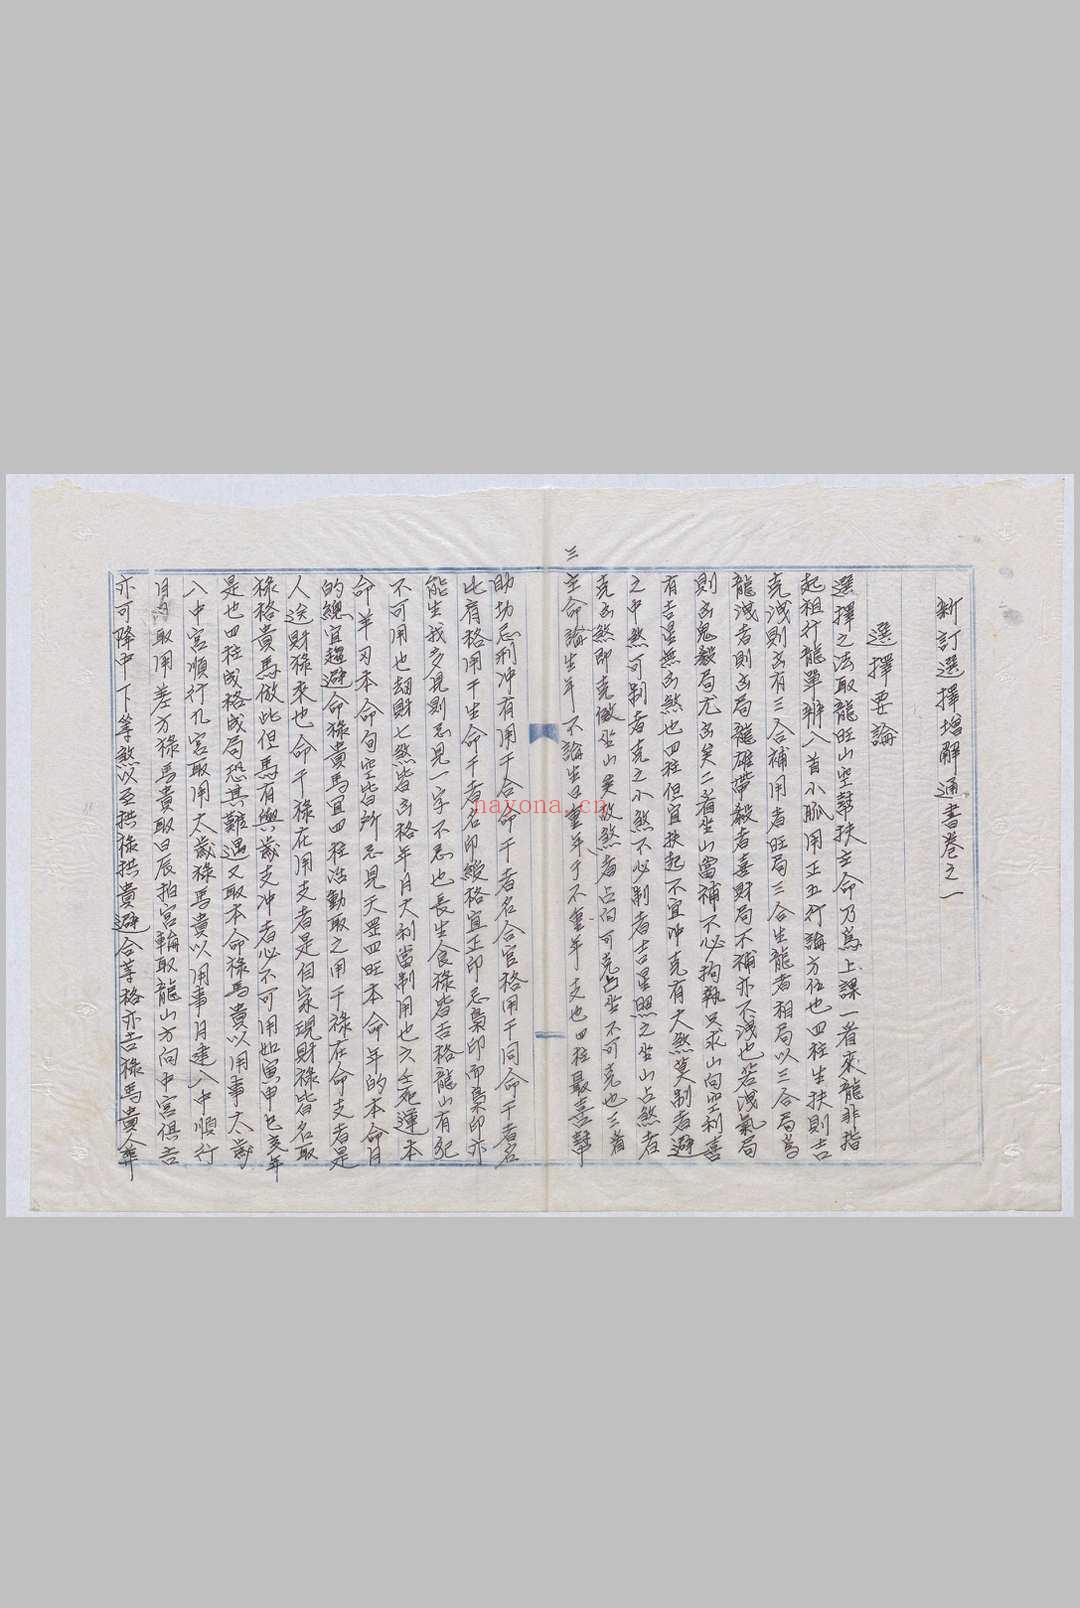 新訂選擇增解通書卷之一
選擇要論
選擇之法取龍旺山空幫扶主命乃爲上課一者來龍非指
起祖行龍單辨入首小脈用正五行論方位也四柱生扶則吉
克洩則凶有三合補用者旺局三合生龍者相局以三合局爲
龍洩者則凶局龍雄帶殺者喜財局不補亦不洩也若洩氣局
則凶鬼殺局尤凶矣二者坐山當補不必拘執只求山向空利喜
有吉星無凶煞也四柱但宜扶起不宜冲克有大煞莫制者避
之中煞可制者克之小煞不必制者吉星照之坐山占煞者
克凶煞即克倣坐山矣故煞者占向可克占坐不可克也三者
三
主命論生年不論生日重年干不重年支也四柱最喜幫
助切忌刑冲有用干合命干者名合官格用干同命干者名
比肩格用干生命干者名印綬格宜正印忌梟印而梟印亦
能生我多見則忌見一字不忌也長生食祿皆吉格龍山有犯
不可用也劫財七煞皆凶格年月大利當制用也六壬死運本
命羊刃本命旬空皆所忌見天罡四旺本命年的本命月
的總宜趨避命祿貴馬宜四柱浩動取之用干祿在命支者是
人送財祿來也命干祿在用支者是自家現財祿皆名取
祿格貴馬倣此但馬有與歲支冲者必不可用如寅申巳亥年
是也四柱成格成局恐其難遇又取本命祿馬貴以用事太歲
入中宮順行九宮取用太歲祿馬貴以用事月建入中順行
取用差方祿馬貴取日辰拍宮輪取龍山方向中宮俱吉
亦可降中下等煞以至拱祿拱貴避合等格亦吉祿馬貴人
nayona.cn